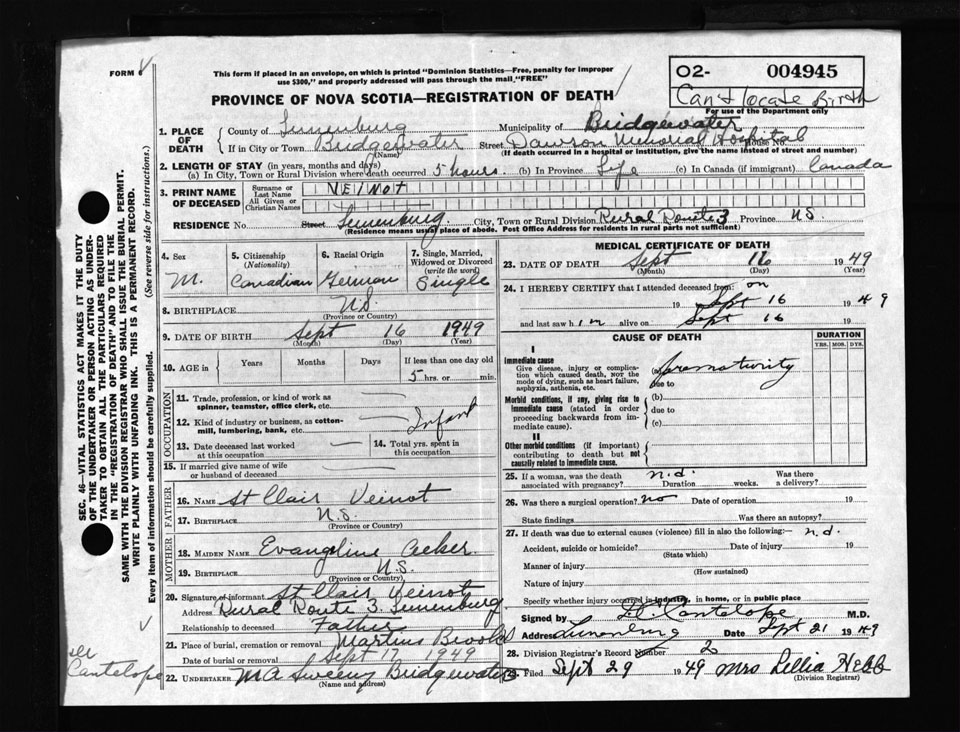 FORM V
This form if placed in an envelope, on which is printed "Dominion Statistics—Free, penalty for improper
use $300," and properly addressed will pass through the mail "FREE"
PROVINCE OF NOVA SCOTIA—REGISTRATION OF DEATH
O2- 004945
Can't locate Birth
For use of the Department only
1. PLACE OF DEATH
County of Lunenburg Municipality of Bridgewater
If in City or Town Bridgewater Street Dawson Memorial Hospital House No.
(Name) (If death occurred in a hospital or institution, give the name instead of street and number)
2. LENGTH OF STAY (in years, months and days)
(a) In City, Town or Rural Division where death occurred 5 hours. (b) In Province Life (c) In Canada (if immigrant) Canada
3. PRINT NAME OF DECEASED
Surname or Last Name VEINOT
All Given or Christian Names
RESIDENCE No. Street Lunenburg. City, Town or Rural Division Rural Route 3 Province N.S.
(Residence means usual place of abode. Post Office Address for residents in rural parts not sufficient)
4. Sex M.
5. Citizenship (Nationality) Canadian
6. Racial Origin German
7. Single, Married, Widowed or Divorced (write the word) Single
8. BIRTHPLACE N.S.
(Province or Country)
9. DATE OF BIRTH Sept 16 1949
(Month) (Day) (Year)
10. AGE in Years Months Days If less than one day old
5 hrs. or min.
OCCUPATION
11. Trade, profession, or kind of work as
spinner, teamster, office clerk, etc.
12. Kind of industry or business, as cotton-
mill, lumbering, bank, etc. Infant
13. Date deceased last worked
at this occupation
14. Total yrs. spent in
this occupation
15. If married give name of wife
or husband of deceased
FATHER
16. NAME St Clair Veinot
17. BIRTHPLACE N.S.
(Province or Country)
MOTHER
18. MAIDEN NAME Evangeline
19. BIRTHPLACE N.S.
(Province or Country)
20. Signature of informant St Clair Veinot
Address Rural Route 3. Lunenburg
Relationship to deceased Father
21. Place of burial, cremation or removal Martins Brook
Date of burial or removal Sept 17 1949
22. UNDERTAKER M A Sweeny Bridgewater
(Name and address)
MEDICAL CERTIFICATE OF DEATH
23. DATE OF DEATH Sept 16 1949
(Month) (Day) (Year)
24. I HEREBY CERTIFY that I attended deceased from: on
19 Sept 16 1949
and last saw him alive on Sept 16 19
CAUSE OF DEATH DURATION
YRS. MOS. DYS.
I
Immediate cause
Give disease, injury or complica-
tion which caused death, NOT the
mode of dying, such as heart failure,
asphyxia, asthenia, etc.
(a) Prematurity
due to
Morbid conditions, if any, giving rise to
immediate cause (stated in order
proceeding backwards from im-
mediate cause).
(b)
due to
(c)
II
Other morbid conditions (if important)
contributing to death but not
causally related to immediate cause.
25. If a woman, was the death n.d. Was there
associated with pregnancy? Duration weeks. a delivery?
26. Was there a surgical operation? no Date of operation 19
State findings Was there an autopsy?
27. If death was due to external causes (violence) fill in also the following:— n.d.
Accident, suicide or homicide? Date of injury 19
(State which)
Manner of injury
(How sustained)
Nature of injury
Specify whether injury occurred in industry, in home, or in public place
Signed by H Cantelope M.D.
Address Lunenburg Date Spt 21 1949
28. Division Registrar's Record Number 2
Filed Sept 29 1949 Mrs Lillia Hebb
(Division Registrar)
SEC. 46—VITAL STATISTICS ACT MAKES IT THE DUTY
OF THE UNDERTAKER OR PERSON ACTING AS UNDER-
TAKER TO OBTAIN ALL THE PARTICULARS REQUIRED
IN THE "REGISTRATION OF DEATH" AND TO FILE THE
SAME WITH THE DIVISION REGISTRAR WHO SHALL ISSUE THE BURIAL PERMIT.
WRITE PLAINLY WITH UNFADING INK. THIS IS A PERMANENT RECORD.
Every item of information should be carefully supplied. (See reverse side for instructions.)
Cantelope